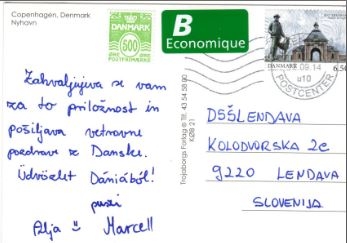 Copenhagen, Denmark
Nyhavn
DANMARK
500
POSTFRIMÆRKE
B
Economique
DANMARK
6,50
09.14
u10
POSTCENTER
Zahvaljujiva se vam
za to priložnost in
pošiljava vetrovne
pozdrave iz Danske.
Üdvözlet Dániából!
pusi
Alja Marcell
Trojaborgs Forlag ® Tlf.: 43 54 58 00
DSŠLENDAVA
KOLODVORSKA 2e
9220 LENDAVA
SLOVENIJA